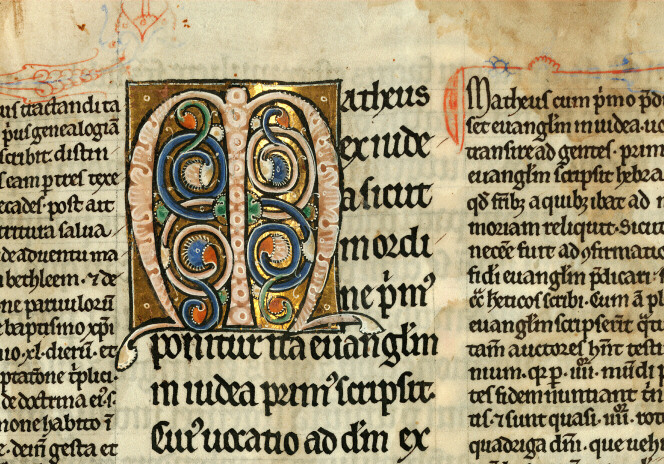 us tractandi ta
p̄us genealogiā
scribit. distin
s eam ꝑ tres texe
ecades. post aut
tertura salua
de aduentu ma
bethleem. ⁊ de
ne paruuloꝝ
e baptismo xp̄i
uo. xl. dierū. et
ptatōne t̄plici.
de doctrina eiꝰ. s.
mone habito ī
e. dein̄ gesta et
Matheus
ex iude
a sicut
in ordi
ne p̄mꝰ
ponitur ita euanglm̄
in iudea primꝰ scripsit.
Cuiꝰ uocatio ad dm̄ ex
Matheus cum p̄mo p̄di
set euanglm̄ in iudea. uo
transire ad gentes. prim
euanglm̄ scripsit hebra
qd̄ fr̄ibꝫ a quibꝫ ibat ad
moriam reliquit. Sicut
necēe fuit ad ꝯfirmatio
fidei euanglm̄ p̄dicari. ⁊
ēē heticos scribi. Cum ā pl
euanglm̄ scripserīt q̄t
tam̄ auctores hn̄t testi
nium. qr ꝑ. iiii. mūdi p
tes fidem nuntiant t̄n
tis. ⁊ sunt quasi. iiii. rote
quadriga dn̄i. que uehi